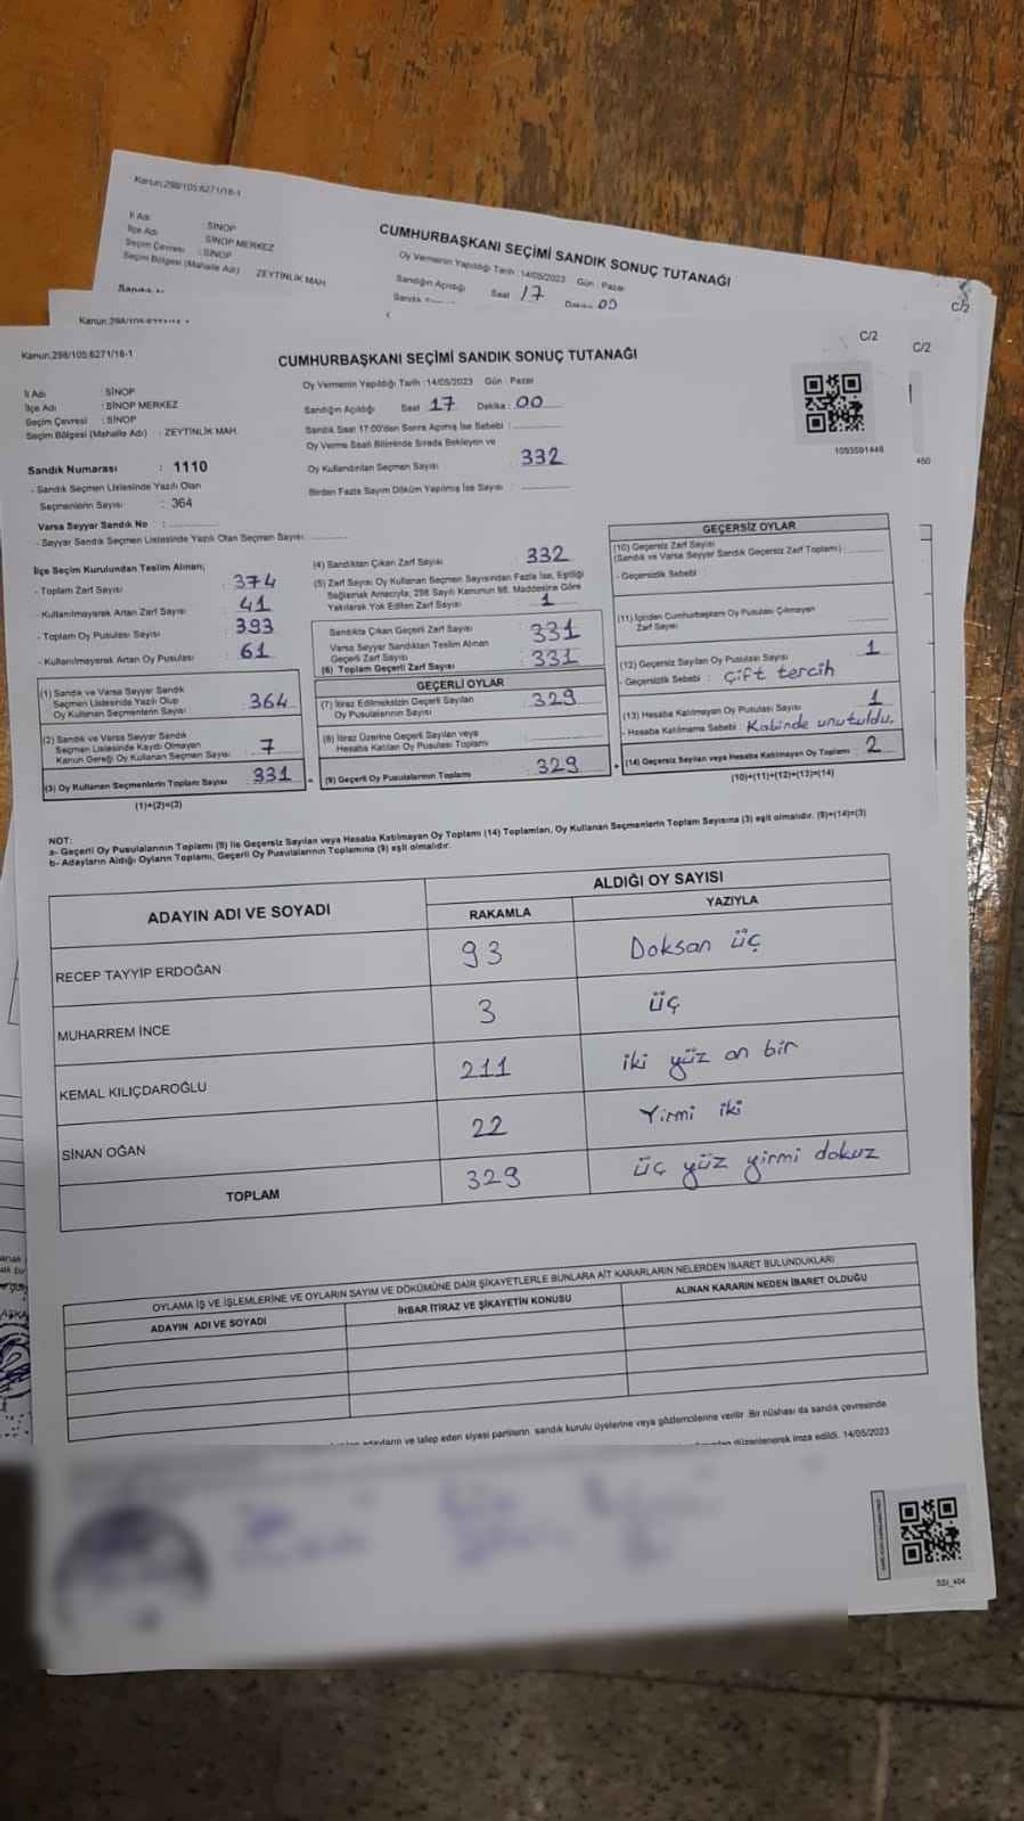 Kanun:298/105:6271/18-1
İl Adı : SİNOP
İlçe Adı : SİNOP MERKEZ
Seçim Çevresi : SİNOP
Seçim Bölgesi (Mahalle Adı) : ZEYTİNLİK MAH.
CUMHURBAŞKANI SEÇİMİ SANDIK SONUÇ TUTANAĞI
Oy Vermenin Yapıldığı Tarih :14/05/2023 Gün : Pazar
Sandığın Açıldığı Saat 17 Dakika 00
C/2
Kanun:298/105:6271/18-1
C/2
C/2
Kanun:298/105:6271/18-1
CUMHURBAŞKANI SEÇİMİ SANDIK SONUÇ TUTANAĞI
İl Adı : SİNOP
İlçe Adı : SİNOP MERKEZ
Seçim Çevresi : SİNOP
Seçim Bölgesi (Mahalle Adı) : ZEYTİNLİK MAH.
Oy Vermenin Yapıldığı Tarih :14/05/2023 Gün : Pazar
Sandığın Açıldığı Saat 17 Dakika : 00
Sandık Saat 17:00'den Sonra Açılmış İse Sebebi :
Oy Verme Saati Bitiminde Sırada Bekleyen ve
Oy Kullandırılan Seçmen Sayısı 332
Birden Fazla Sayım Döküm Yapılmış İse Sayısı :
1093591448
450
Sandık Numarası : 1110
- Sandık Seçmen Listesinde Yazılı Olan
Seçmenlerin Sayısı : 364
Varsa Seyyar Sandık No :
- Seyyar Sandık Seçmen Listesinde Yazılı Olan Seçmen Sayısı:
İlçe Seçim Kurulundan Teslim Alınan;
- Toplam Zarf Sayısı : 374
- Kullanılmayarak Artan Zarf Sayısı : 41
- Toplam Oy Pusulası Sayısı : 393
- Kullanılmayarak Artan Oy Pusulası : 61
(1) Sandık ve Varsa Seyyar Sandık
Seçmen Listesinde Yazılı Olup
Oy Kullanan Seçmenlerin Sayısı 364
(2) Sandık ve Varsa Seyyar Sandık
Seçmen Listesinde Kaydı Olmayan
Kanun Gereği Oy Kullanan Seçmen Sayısı 7
(3) Oy Kullanan Seçmenlerin Toplam Sayısı 331
(1)+(2)=(3)
(4) Sandıktan Çıkan Zarf Sayısı 332
(5) Zarf Sayısı Oy Kullanan Seçmen Sayısından Fazla İse, Eşitliği
Sağlamak Amacıyla, 298 Sayılı Kanunun 98. Maddesine Göre
Yakılarak Yok Edilen Zarf Sayısı 1
Sandıkta Çıkan Geçerli Zarf Sayısı 331
Varsa Seyyar Sandıktan Teslim Alınan
Geçerli Zarf Sayısı
(6) Toplam Geçerli Zarf Sayısı 331
GEÇERLİ OYLAR
(7) İtiraz Edilmeksizin Geçerli Sayılan
Oy Pusulalarının Sayısı 329
(8) İtiraz Üzerine Geçerli Sayılan veya
Hesaba Katılan Oy Pusulası Toplamı
= (9) Geçerli Oy Pusulalarının Toplamı 329
GEÇERSİZ OYLAR
(10) Geçersiz Zarf Sayısı
(Sandık ve Varsa Seyyar Sandık Geçersiz Zarf Toplamı)
- Geçersizlik Sebebi
(11) İçinden Cumhurbaşkanı Oy Pusulası Çıkmayan
Zarf Sayısı
(12) Geçersiz Sayılan Oy Pusulası Sayısı 1
- Geçersizlik Sebebi : Çift tercih
(13) Hesaba Katılmayan Oy Pusulası Sayısı 1
- Hesaba Katılmama Sebebi : Kabinde unutuldu.
+ (14) Geçersiz Sayılan veya Hesaba Katılmayan Oy Toplamı 2
(10)+(11)+(12)+(13)=(14)
NOT:
a- Geçerli Oy Pusulalarının Toplamı (9) ile Geçersiz Sayılan veya Hesaba Katılmayan Oy Toplamı (14) Toplamları, Oy Kullanan Seçmenlerin Toplam Sayısına (3) eşit olmalıdır. (9)+(14)=(3)
b- Adayların Aldığı Oyların Toplamı, Geçerli Oy Pusulalarının Toplamına (9) eşit olmalıdır.
ADAYIN ADI VE SOYADI
ALDIĞI OY SAYISI
RAKAMLA YAZIYLA
RECEP TAYYİP ERDOĞAN 93 Doksan üç
MUHARREM İNCE 3 üç
KEMAL KILIÇDAROĞLU 211 iki yüz on bir
SİNAN OĞAN 22 Yirmi iki
TOPLAM 329 üç yüz yirmi dokuz
OYLAMA İŞ VE İŞLEMLERİNE VE OYLARIN SAYIM VE DÖKÜMÜNE DAİR ŞİKAYETLERLE BUNLARA AİT KARARLARIN NELERDEN İBARET BULUNDUKLARI
ADAYIN ADI VE SOYADI İHBAR İTİRAZ VE ŞİKAYETİN KONUSU ALINAN KARARIN NEDEN İBARET OLDUĞU
adayların ve talep eden siyasi partilerin sandık kurulu üyelerine veya gözlemcilerine verilir. Bir nüshası da sandık çevresinde
düzenlenerek imza edildi. 14/05/2023